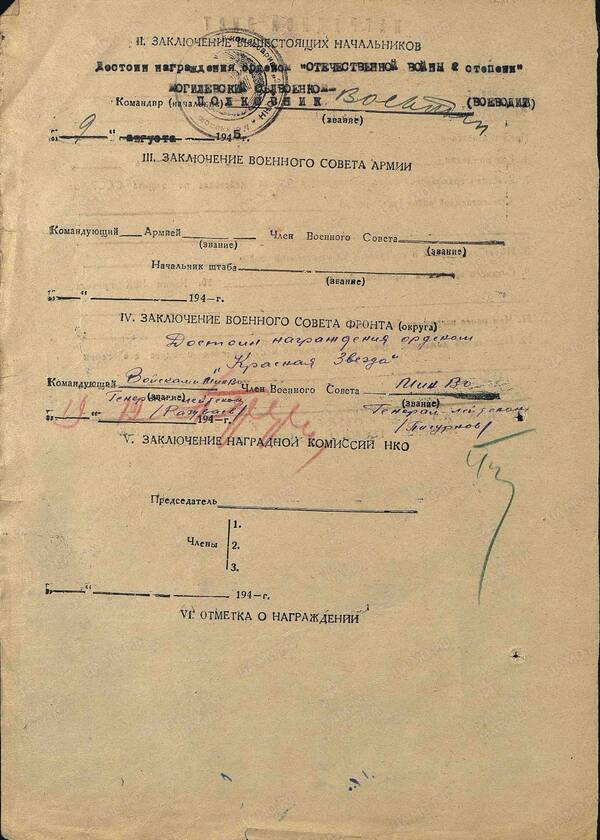 II. ЗАКЛЮЧЕНИЕ ВЫШЕСТОЯЩИХ НАЧАЛЬНИКОВ
Достоин награждения орденом "ОТЕЧЕСТВЕННОЙ ВОЙНЫ 2 степени"
МОГИЛЕВСКИЙ ОБЛВОЕНКОМ-
Командир (начальник) ПОЛКОВНИК (ВОЕВОДИН)
(звание)
"9" августа 1945 г.
III. ЗАКЛЮЧЕНИЕ ВОЕННОГО СОВЕТА АРМИИ
Командующий Армией Член Военного Совета
(звание) (звание)
Начальник штаба
(звание)
" " 194 г.
IV. ЗАКЛЮЧЕНИЕ ВОЕННОГО СОВЕТА ФРОНТА (округа)
Достоин награждения орденом
"Красная Звезда"
Командующий Войсками МинВО Член Военного Совета МинВО
(звание) (звание)
Генерал-лейтенант Генерал-лейтенант
" " 194 г.
V. ЗАКЛЮЧЕНИЕ НАГРАДНОЙ КОМИССИИ НКО
Председатель
1.
Члены 2.
3.
" " 194 г.
VI. ОТМЕТКА О НАГРАЖДЕНИИ